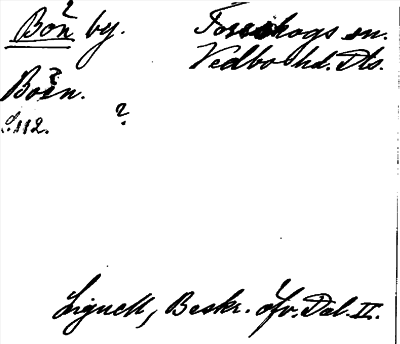 Bön by. Tösshogs sn.
Vedbo hd. Dls.
Boen.
S. 112. ?
Lignell, Beskr. öfv. Dal. II.